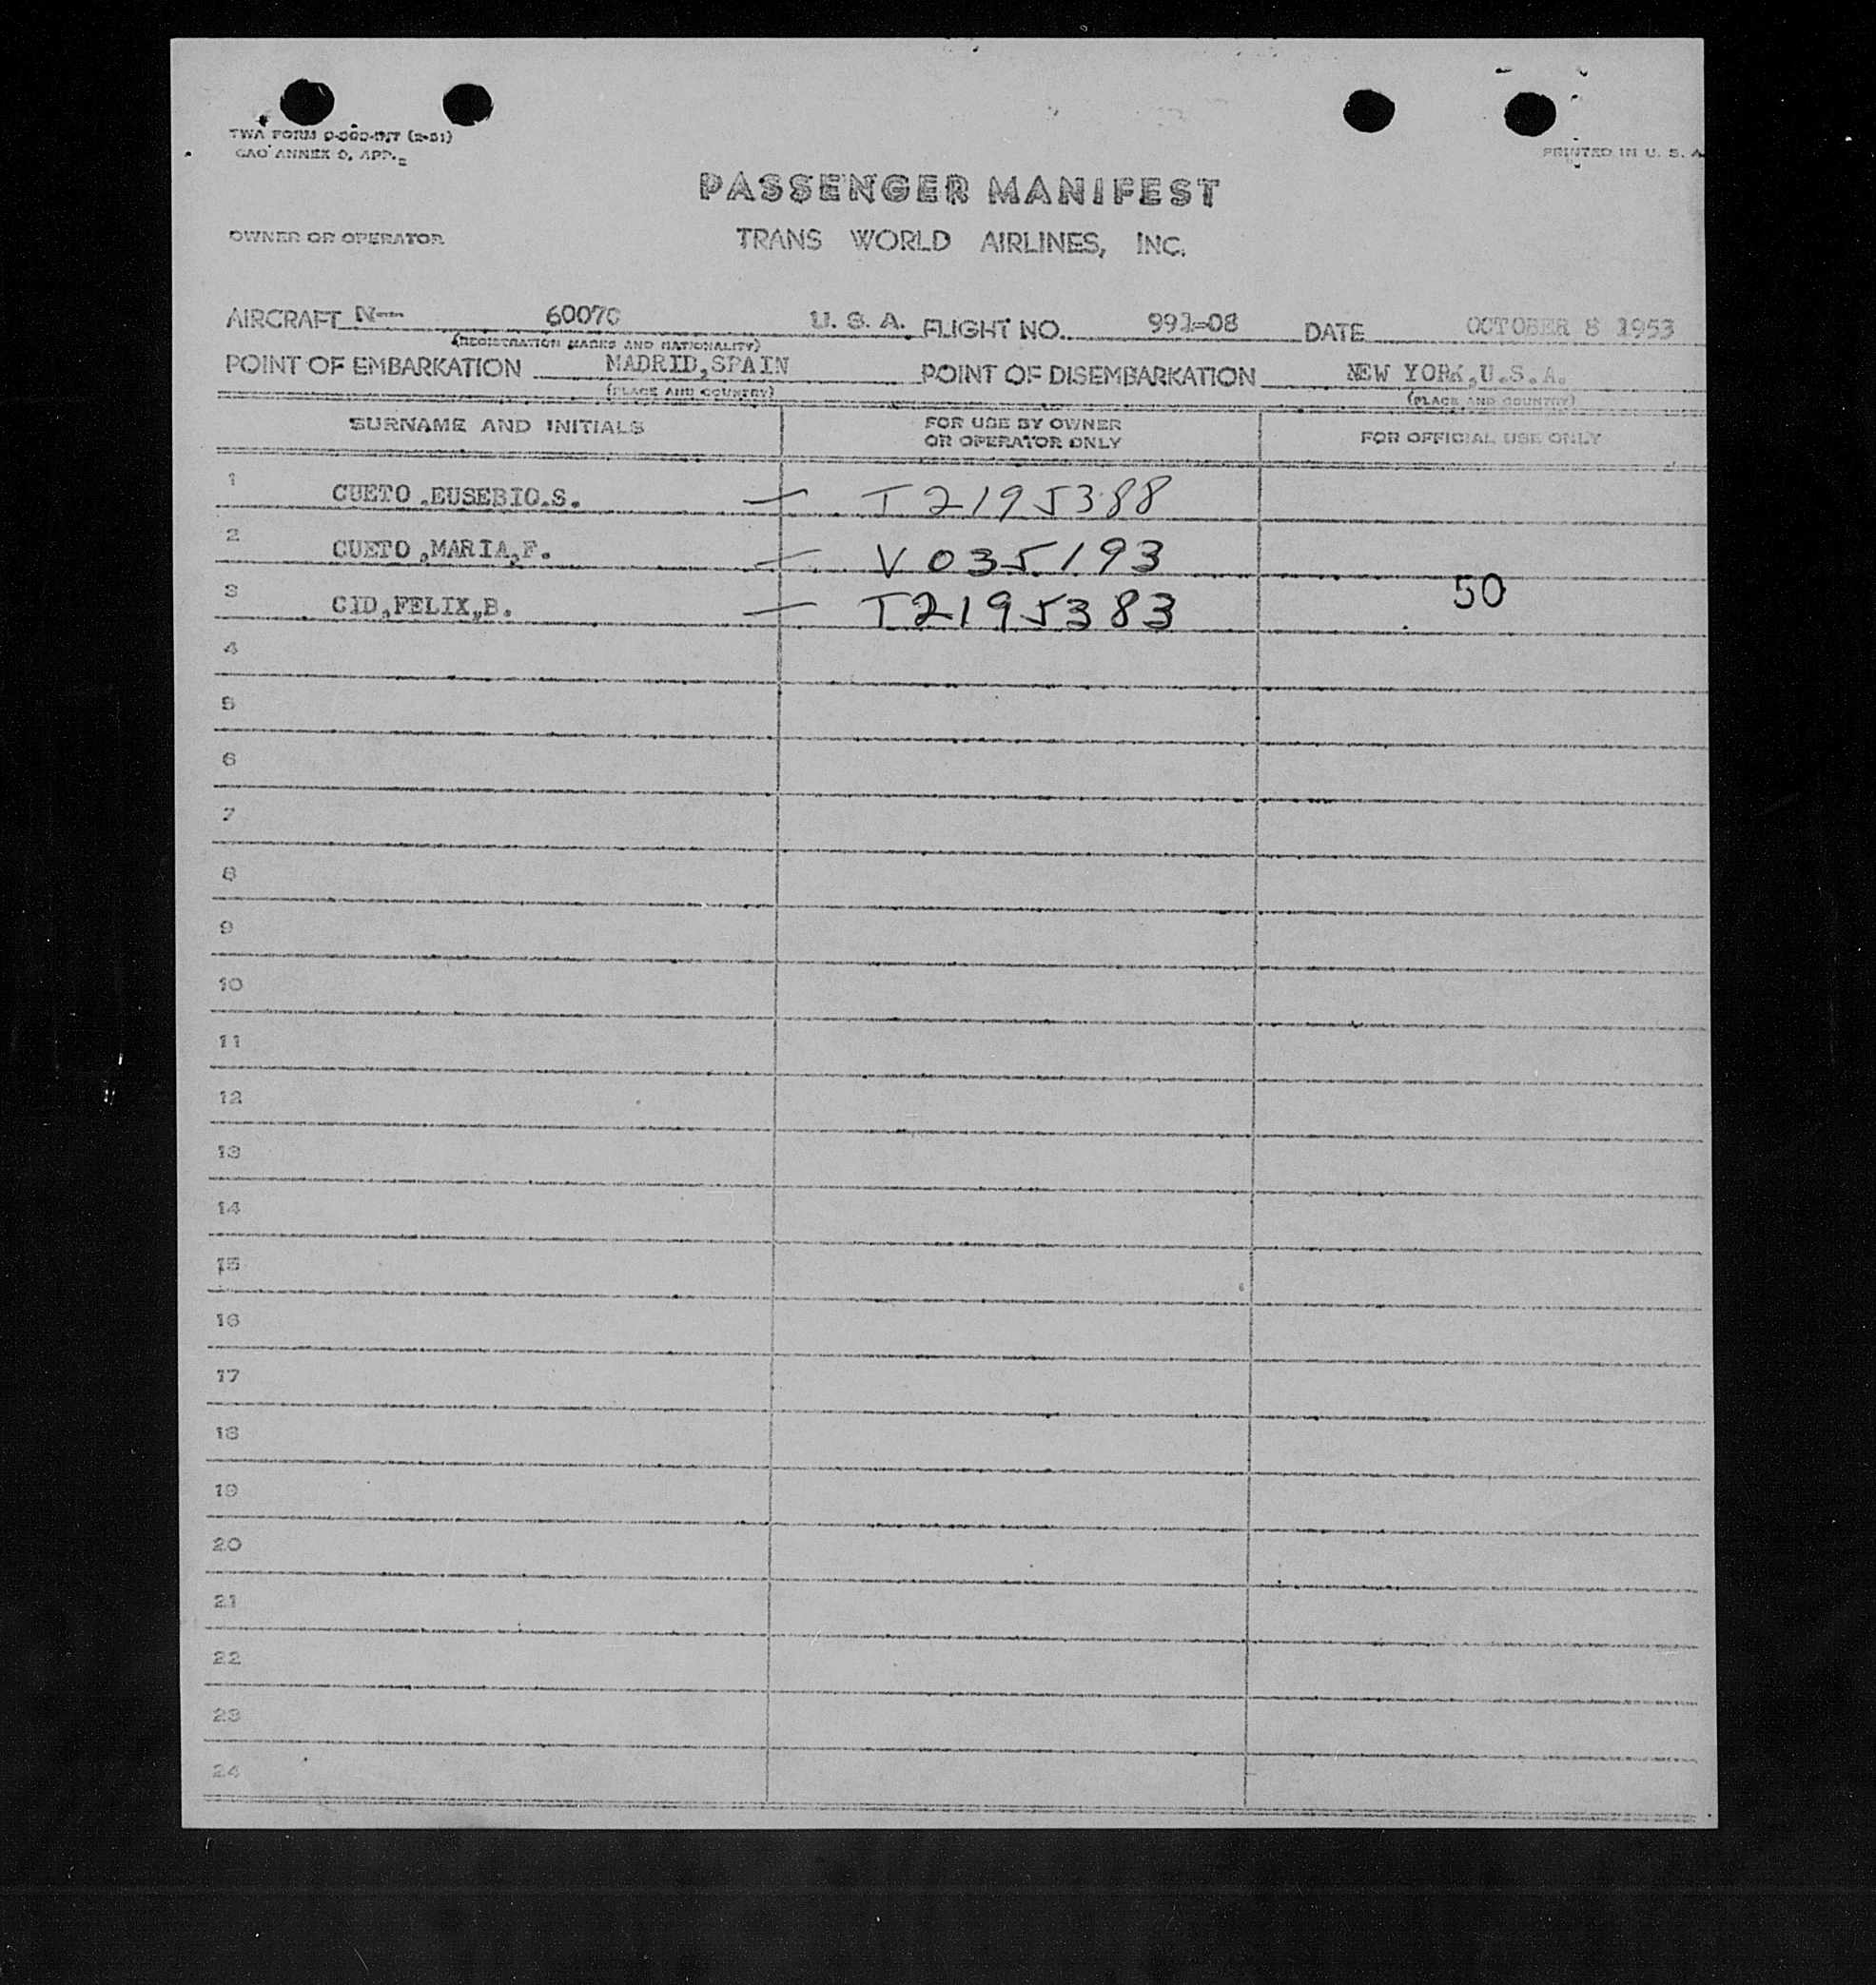 TWA FORM
CAO ANNEX 9, APP.
PRINTED IN U. S. A
PASSENGER MANIFEST
OWNER OR OPERATOR
TRANS WORLD AIRLINES, INC.
AIRCRAFT N-- 6007C U. S. A. FLIGHT NO. 991-08 DATE OCTOBER 8 1953
(REGISTRATION MARKS AND NATIONALITY)
POINT OF EMBARKATION MADRID,SPAIN POINT OF DISEMBARKATION NEW YORK,U.S.A.
(PLACE AND COUNTRY) (PLACE AND COUNTRY)
SURNAME AND INITIALS FOR USE BY OWNER OR OPERATOR ONLY FOR OFFICIAL USE ONLY
1 CUETO ,EUSEBIO.S. — T2195388
2 CUETO ,MARIA,F. — V035193
3 CID,FELIX,B. — T2195383 50
4
5
6
7
8
9
10
11
12
13
14
15
16
17
18
19
20
21
22
23
24